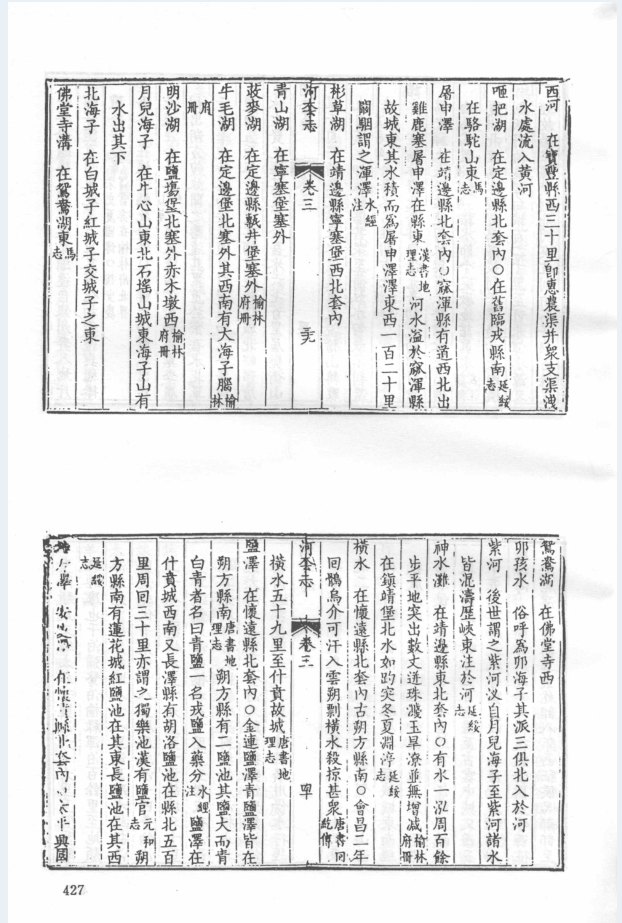 西河　在寶豐縣西三十里卽惠農渠并衆支渠洩
水處流入黃河
咂把湖　在定邊縣北套內○在舊臨戎縣南延綏志
在駱駝山東馬志
屠申澤　在靖邊縣北套內○窳渾縣有道西北出
雞鹿塞屠申澤在縣東漢書地理志　河水溢於窳渾縣
故城東其水積而爲屠申澤澤東西一百二十里
闞駰謂之渾澤水經注
彬草湖　在靖邊縣寧塞堡西北套內
河套志　卷三　
青山湖　在寧塞堡塞外
莜麥湖　在定邊縣甎井堡塞外榆林府冊
牛毛湖　在定邊堡北塞外其西南有大海子腦榆林
府冊
明沙湖　在鹽場堡北塞外赤木墩西榆林府冊
月兒海子　在牛心山東北石瑤山城東海子山有
水出其下
北海子　在白城子紅城子交城子之東
佛堂寺溝　在鴛鴦湖東馬志
鴛鴦湖　在佛堂寺西
卯孩水　俗呼爲卯海子其派三俱北入於河
紫河　後世謂之紫河汊自月兒海子至紫河諸水
皆混濤歷峽東注於河延綏志
神水灘　在靖邊縣東北套內○有水一泓周百餘
步平地突出數丈迸珠濺玉旱潦並無增減榆林府冊
在鎮靖堡北水如趵突冬夏淵渟延綏志
橫水　在懷遠縣北套內古朔方縣南○會昌二年
回鶻烏介可汗入雲朔剽橫水殺掠甚衆唐書回紇傳
河套志　卷三　
橫水五十九里至什賁故城唐書地理志
鹽澤　在懷遠縣北套內○金連鹽澤青鹽澤皆在
朔方縣南唐書地理志　朔方縣有二鹽池其鹽大而青
白青者名曰青鹽一名戎鹽入藥分水經注　鹽澤在
什賁城西南又長澤縣有胡洛鹽池在縣北五百
里周回三十里亦謂之獨樂池漢有鹽官元和志　朔
方縣南有蓮花城紅鹽池在其東長鹽池在其西
延綏志
在懷遠縣北套內○太平興國
427